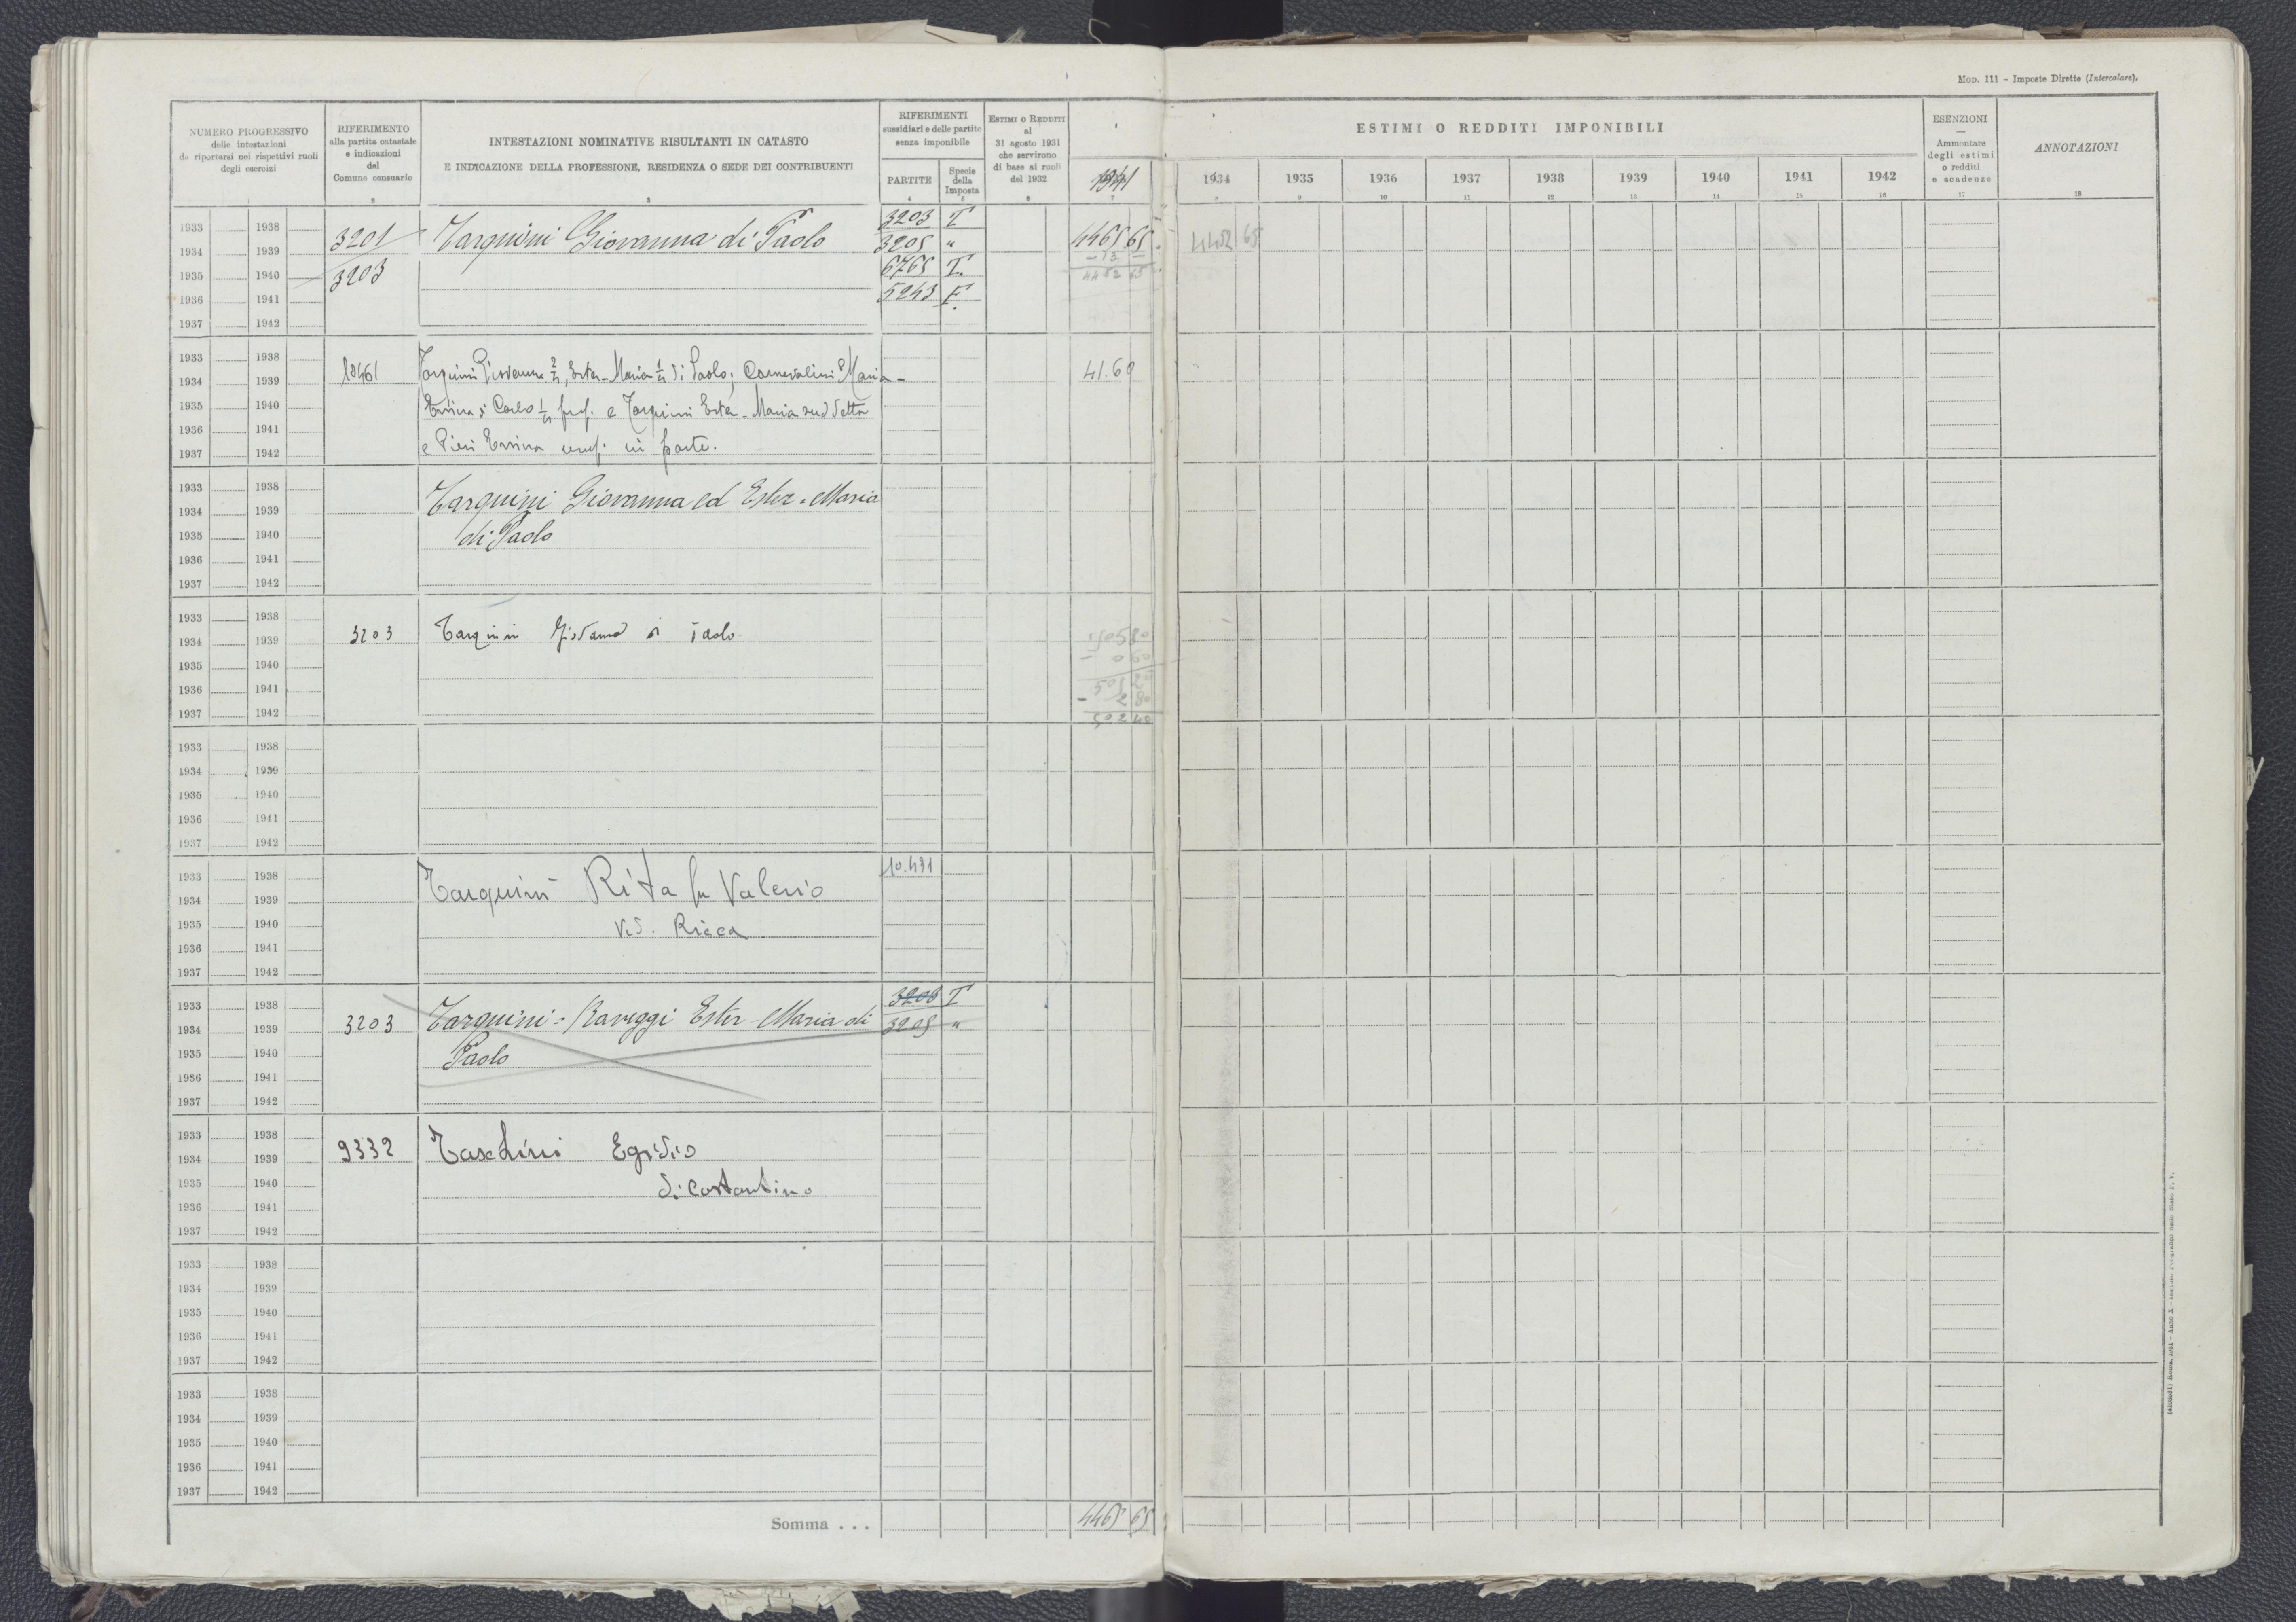 Mod. 111 – Imposte Dirette (Intercalare).
NUMERO PROGRESSIVO
delle intestazioni
da riportarsi nei rispettivi ruoli
degli esercizi
1
RIFERIMENTO
alla partita catastale
e indicazioni
del
Comune censuario
2
INTESTAZIONI NOMINATIVE RISULTANTI IN CATASTO
E INDICAZIONE DELLA PROFESSIONE, RESIDENZA O SEDE DEI CONTRIBUENTI
3
RIFERIMENTI
sussidiari e delle partite
senza imponibile
PARTITE
4
Specie
della
Imposta
5
Estimi o Redditi
al
31 agosto 1931
che servirono
di base ai ruoli
del 1932
6
1941
7
ESTIMI O REDDITI IMPONIBILI
1934 1935 1936 1937 1938 1939 1940 1941 1942
8 9 10 11 12 13 14 15 16
ESENZIONI
—
Ammontare
degli estimi
o redditi
e scadenze
17
ANNOTAZIONI
18
1933 1938 3203 T
3201 Tarquini Giovanna di Paolo 4465 65 4452 65
1934 1939 3205 "
– 13 –
1935 1940 3203 6765 T.
4452 65
1936 1941 5243 F.
1937 1942
1933 1938
1934 1939 10461 Tarquini Giovanna 2/4, Ester-Maria 1/4 di Paolo; Carnevalini Maria- 41.60
1935 1940 Ersina di Carlo 1/4 prop. e Tarquini Ester-Maria suddetta
1936 1941
1937 1942 e Pieri Ersina usuf. in parte.
1933 1938 Tarquini Giovanna ed Ester-Maria
1934 1939
1935 1940 di Paolo
1936 1941
1937 1942
1933 1938
1934 1939 3203 Tarquini Giovanna di Paolo
1935 1940 – 0 60
1936 1941
– 2 80
1937 1942 502 40
1933 1938
1934 1939
1935 1940
1936 1941
1937 1942
1933 1938 10.431
1934 1939 Tarquini Rita fu Valerio
1935 1940 Vid. Ricca
1936 1941
1937 1942
1933 1938 3203 T
1934 1939 3203 Tarquini-Raveggi Ester Maria di 3205 "
1935 1940 Paolo
1936 1941
1937 1942
1933 1938
1934 1939 9332 Taschini Egidio
1935 1940 di Costantino
1936 1941
1937 1942
1933 1938
1934 1939
1935 1940
1936 1941
1937 1942
1933 1938
1934 1939
1935 1940
1936 1941
1937 1942
Somma . . . 4465 65